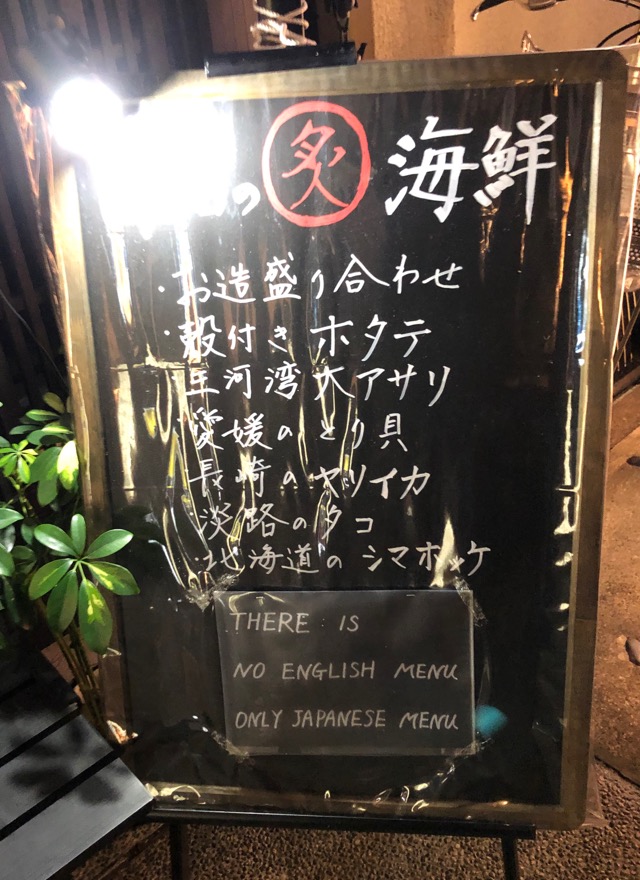 の 炙 海鮮
・お造盛り合わせ
・殻付きホタテ
三河湾大アサリ
愛媛のとり貝
長崎のヤリイカ
淡路のタコ
北海道のシマホッケ
THERE IS
NO ENGLISH MENU
ONLY JAPANESE MENU